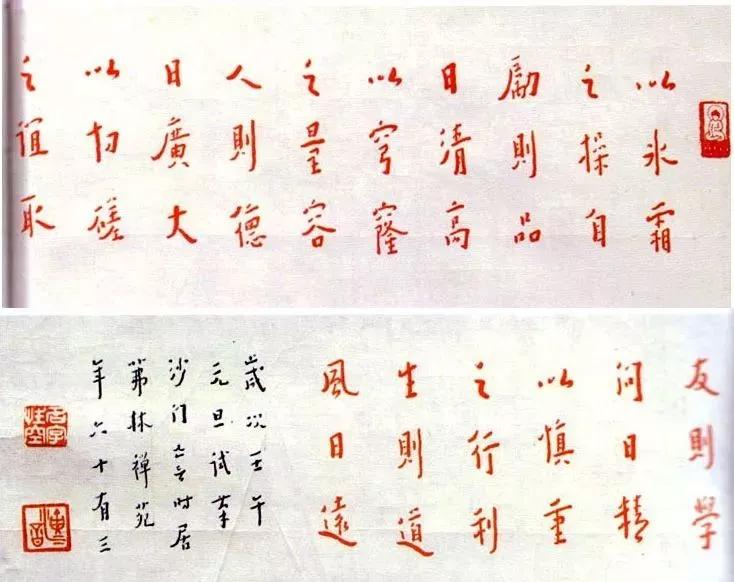 以冰霜
之操自
勵則品
日清高
以穹窿
之量容
人則德
日廣大
以切磋
之誼取
友則學
問日精
以慎重
之行利
生則道
風日遠
歲次壬午
元旦試筆
沙门亡言时居
茀林禪苑
年六十有三